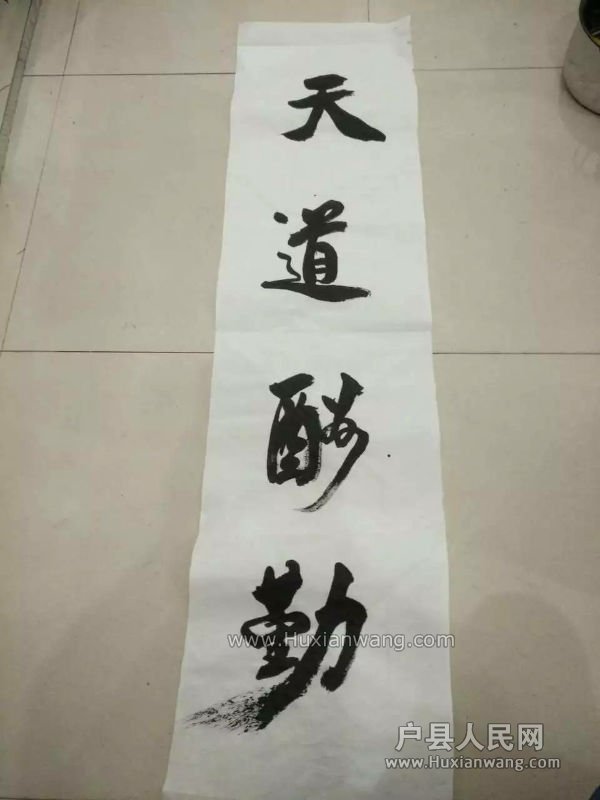 天道酬勤
www.Huxianwang.com
户县人民网
www.Huxianwang.com